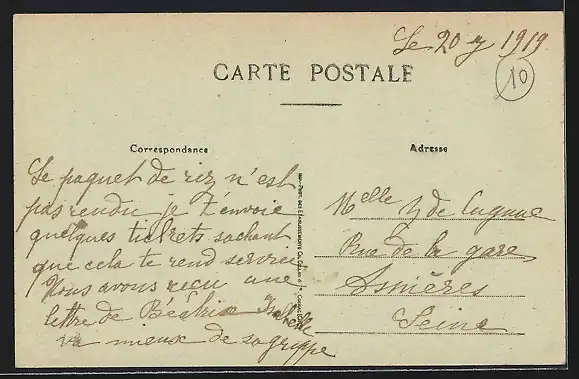 Le 20 7 1919
10
CARTE POSTALE
Correspondance
Adresse
Le paquet de riz n'est
pas rendu je t'envoie
quelques tickets sachant
que cela te rend service
Nous avons reçu une
lettre de Béatrix Isabelle
va mieux de sa grippe
Melle de
Rue de la gare
Asnières
Seine